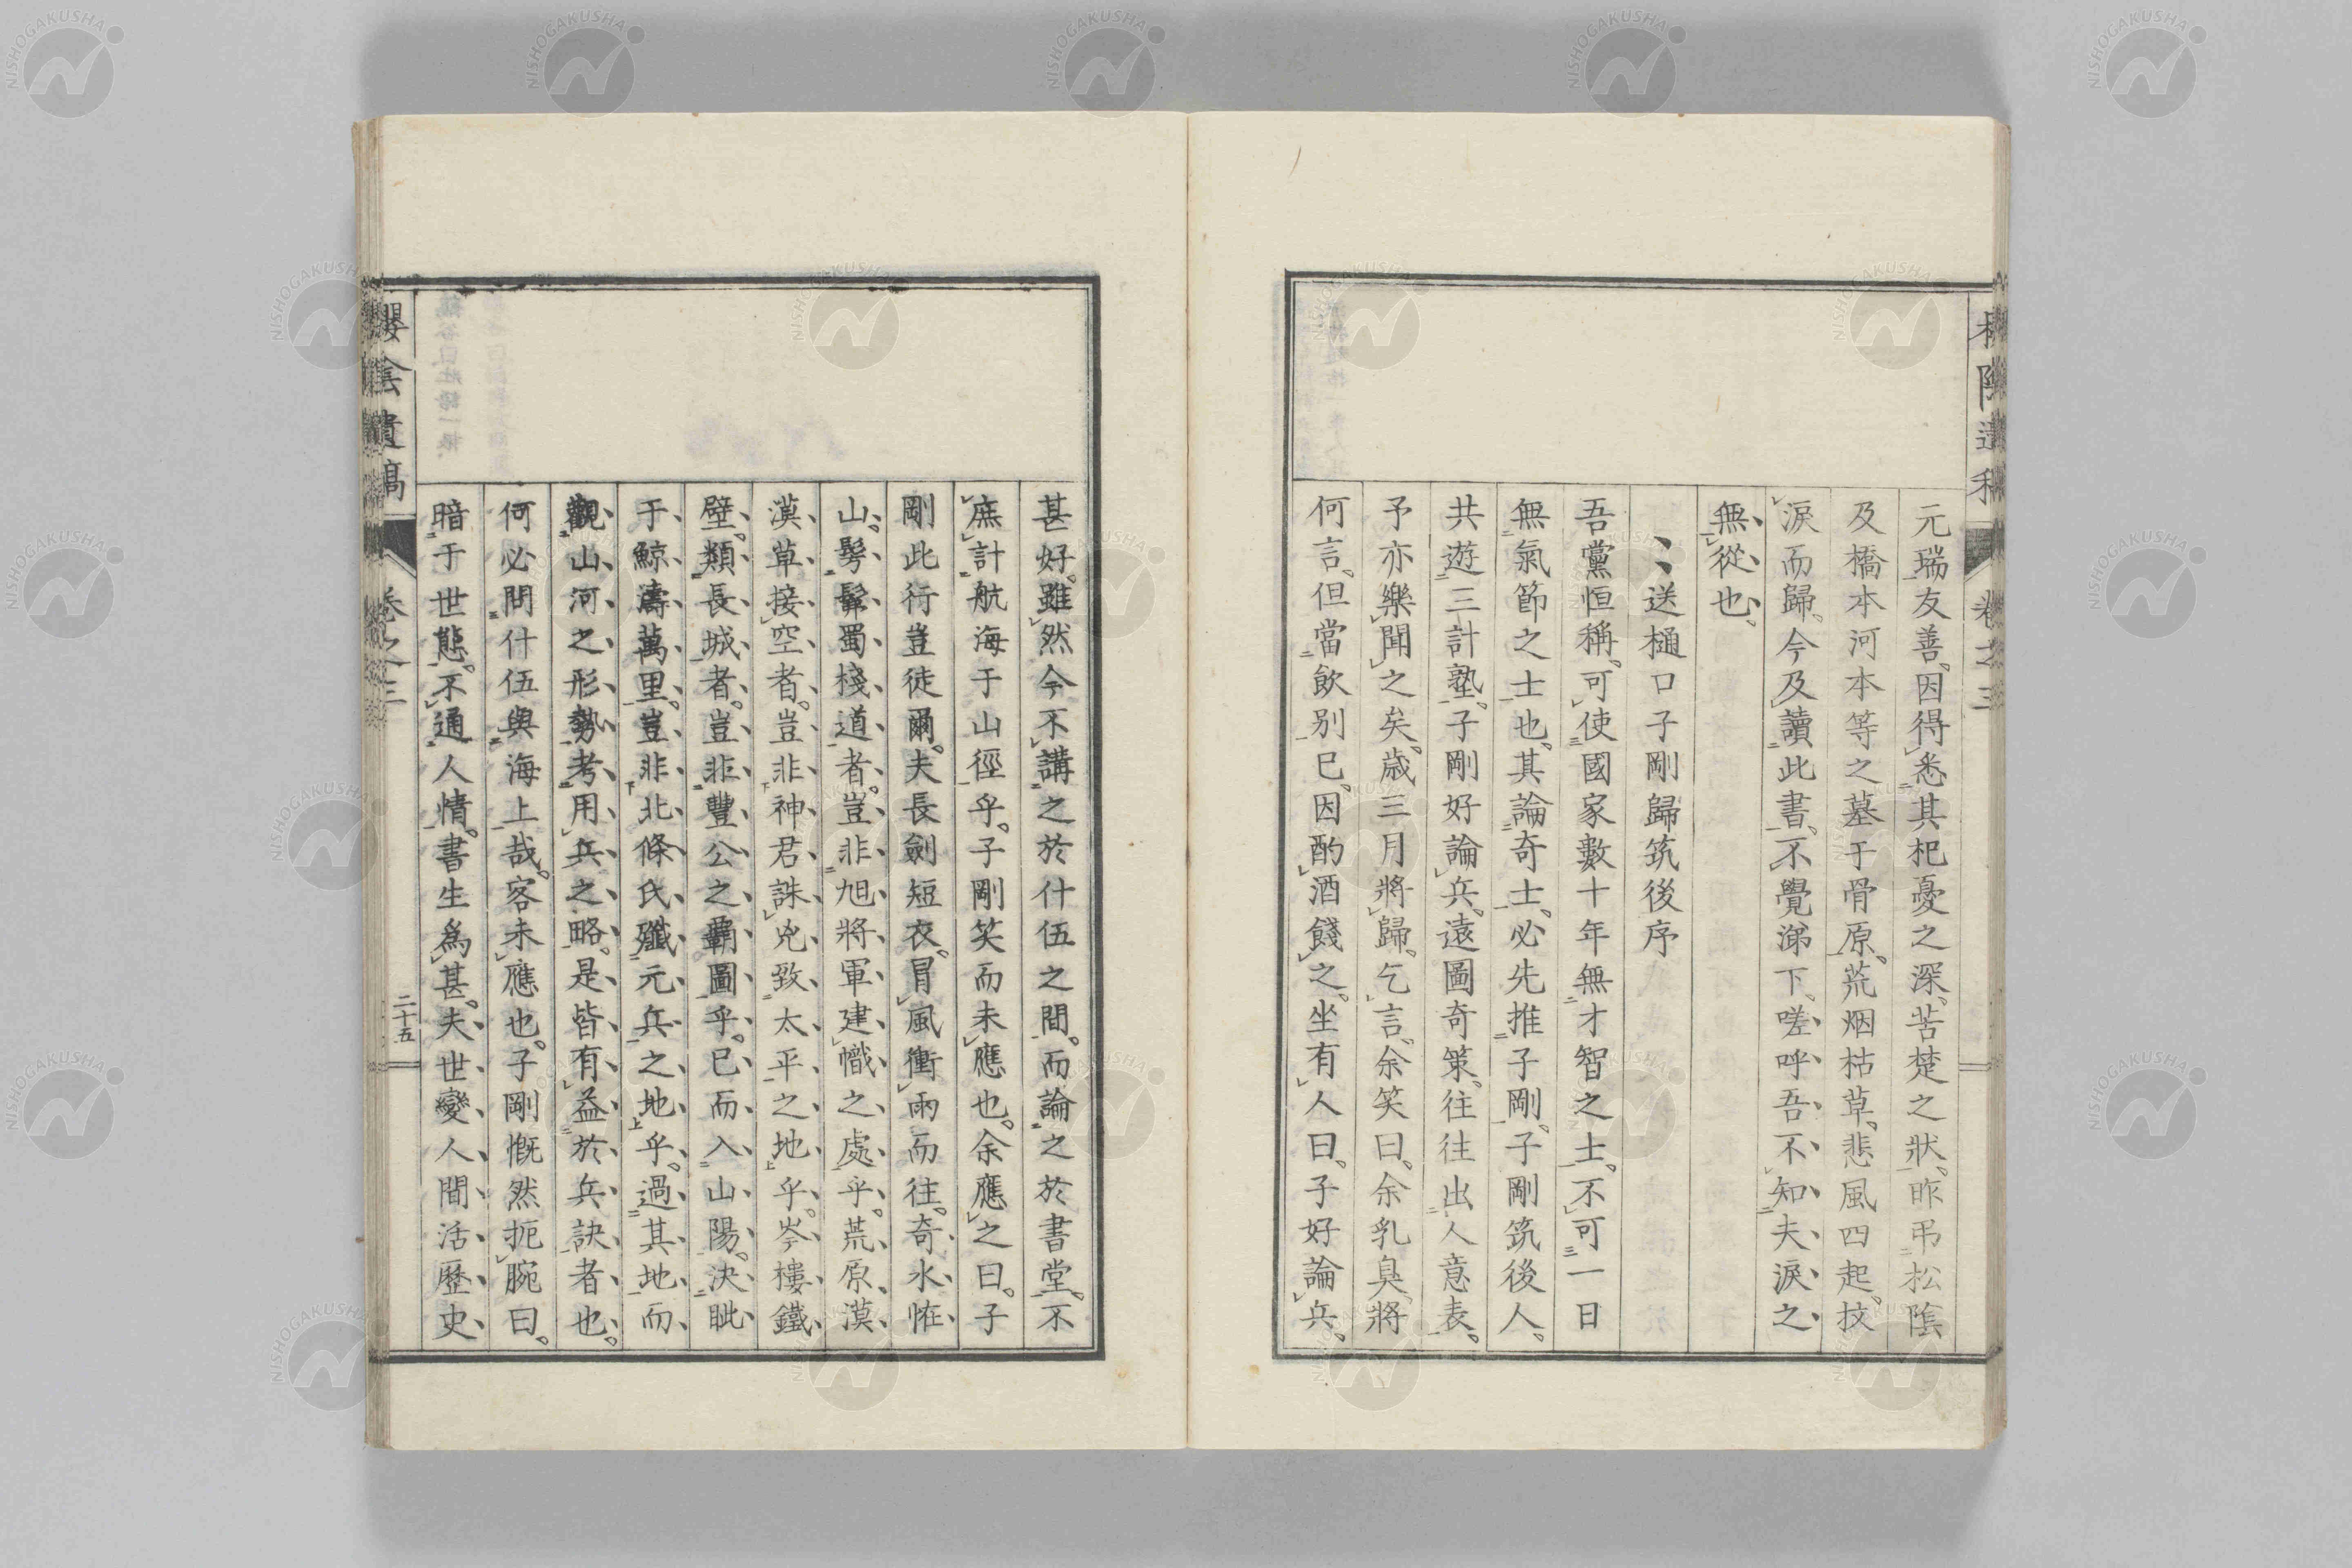 元瑞友善。因得悉其杞憂之深。苦楚之狀。昨弔松陰
及橋本河本等之墓于骨原。荒烟枯草。悲風四起。抆
淚而歸。今及讀此書。不覺涕下。嗟呼吾不知夫淚之
無從也。
送樋口子剛歸筑後序
吾黨恒稱。可使國家數十年無才智之士。不可一日
無氣節之士也。其論奇士。必先推子剛。子剛筑後人。
共遊三計塾。子剛好論兵。遠圖奇策。往往出人意表。
予亦樂聞之矣。歲三月將歸。乞言。余笑曰。余乳臭。將
何言。但當飲別已。因酌酒餞之。坐有人曰。子好論兵。
卷之三
甚好。雖然今不講之於什伍之間。而論之於書堂。不
庶計航海于山徑乎。子剛笑而未應也。余應之曰。子
剛此行豈徒爾。夫長劍短衣。冒風衝雨而往。奇水恠
山。髣髴蜀棧道者。豈非旭將軍建幟之處乎。荒原漠
漠草接空者。豈非神君誅兇致太平之地乎。岑樓鐵
壁。類長城者。豈非豐公之霸圖乎。已而入山陽。決眦
于鯨濤萬里。豈非北條氏殲元兵之地乎。過其地而
觀山河之形勢。考用兵之略。是皆有益於兵訣者也。
何必問什伍與海上哉。客未應也。子剛慨然扼腕曰。
暗于世態。不通人情。書生爲甚。夫世變人間活歷史
櫻陰遺稿
卷之三
二十五